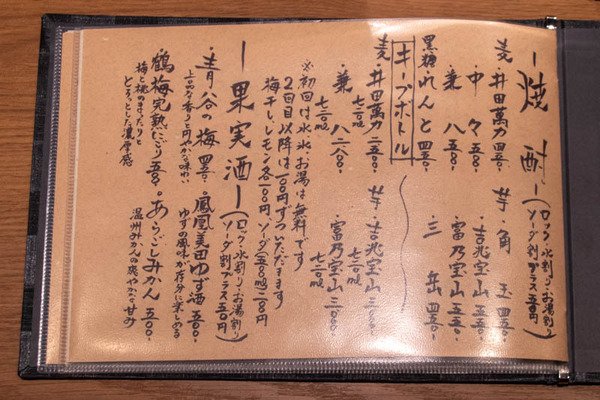 ー焼酎ー(ロック・水割り・お湯割り
ソーダ割プラス五〇円)
麦・井田萬力四五〇・
芋・角玉四五〇・
・中々五〇〇・
・吉兆宝山五五〇・
・兼八五〇・
・富乃宝山五五〇・
黒糖・れんと四五〇・
・三岳四五〇・
キープボトル
麦・井田萬力二五〇〇・
七二〇ml
芋・吉兆宝山三〇〇〇・
七二〇ml
・兼八二八〇〇・
七二〇ml
・富乃宝山三〇〇〇・
七二〇ml
※初回は水、氷、お湯は無料です
2回目以降は一〇〇円ずついただきます
梅干し、レモン各一〇〇円、ソーダ
ー果実酒ー(ロック・水割り・お湯割り
ソーダ割プラス五〇円)
・青谷の梅四五〇・
上品な香りと円やかな味わい
・鳳凰美田ゆず酒五〇〇・
ゆずの風味が存分に楽しめる
・鶴梅完熟にごり五五〇・
梅と桃のまったりと
とろっとした濃厚感
・あらごしみかん五〇〇・
温州みかんの爽やかな甘み